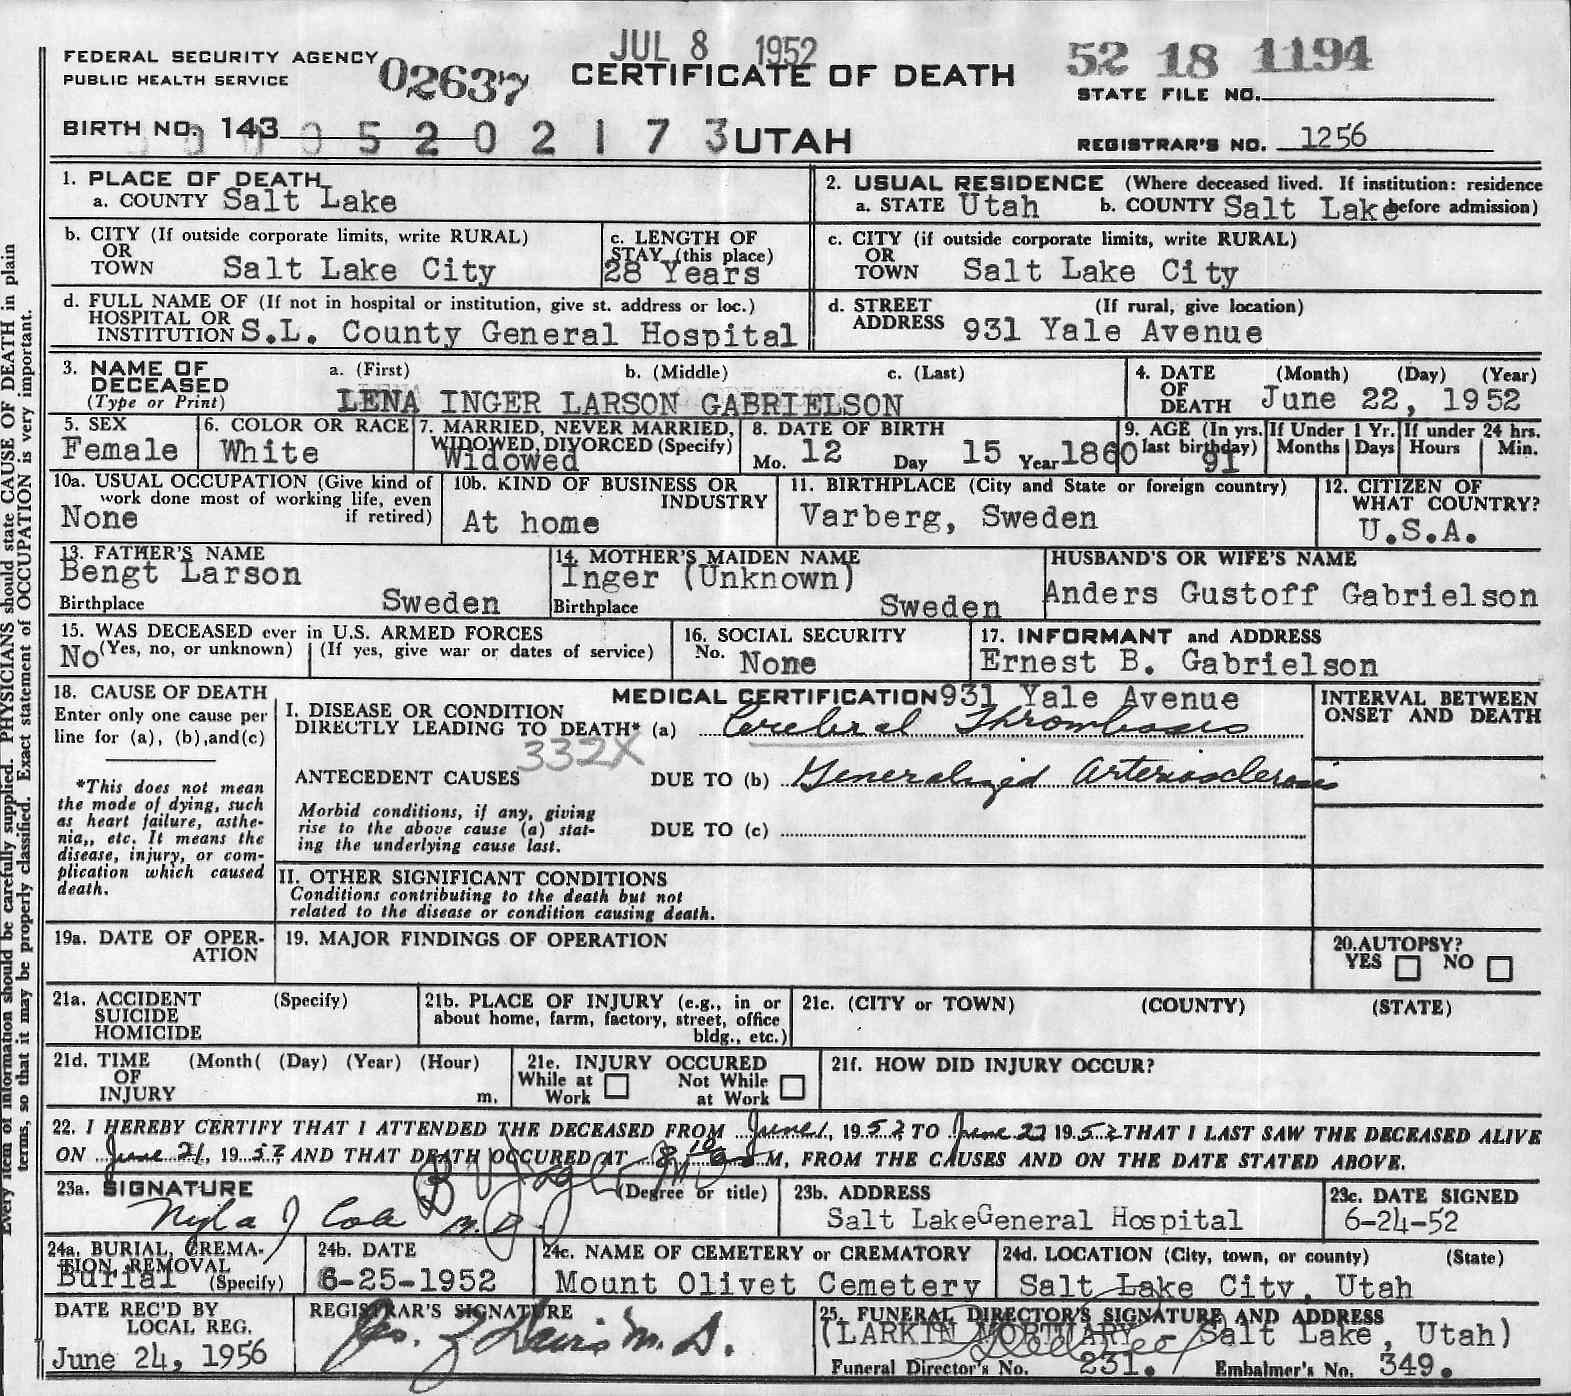 JUL 8 1952
FEDERAL SECURITY AGENCY
PUBLIC HEALTH SERVICE
02637
CERTIFICATE OF DEATH
52 18 1194
STATE FILE NO.
BIRTH NO. 143
0 5 2 0 2 1 7 3
UTAH
REGISTRAR'S NO. 1256
1. PLACE OF DEATH
a. COUNTY Salt Lake
2. USUAL RESIDENCE (Where deceased lived. If institution: residence before admission)
a. STATE Utah b. COUNTY Salt Lake
b. CITY (If outside corporate limits, write RURAL)
OR
TOWN Salt Lake City
c. LENGTH OF
STAY (this place)
28 Years
c. CITY (if outside corporate limits, write RURAL)
OR
TOWN Salt Lake City
d. FULL NAME OF (If not in hospital or institution, give st. address or loc.)
HOSPITAL OR
INSTITUTION S.L. County General Hospital
d. STREET (If rural, give location)
ADDRESS 931 Yale Avenue
3. NAME OF
DECEASED
(Type or Print)
a. (First) b. (Middle) c. (Last)
LENA INGER LARSON GABRIELSON
4. DATE (Month) (Day) (Year)
OF
DEATH June 22, 1952
5. SEX
Female
6. COLOR OR RACE
White
7. MARRIED, NEVER MARRIED,
WIDOWED, DIVORCED (Specify)
Widowed
8. DATE OF BIRTH
Mo. 12 Day 15 Year 1860
9. AGE (In yrs. last birthday)
91
If Under 1 Yr.
Months Days
If under 24 hrs.
Hours Min.
10a. USUAL OCCUPATION (Give kind of
work done most of working life, even
if retired)
None
10b. KIND OF BUSINESS OR
INDUSTRY
At home
11. BIRTHPLACE (City and State or foreign country)
Varberg, Sweden
12. CITIZEN OF
WHAT COUNTRY?
U.S.A.
13. FATHER'S NAME
Bengt Larson
Birthplace Sweden
14. MOTHER'S MAIDEN NAME
Inger (Unknown)
Birthplace Sweden
HUSBAND'S OR WIFE'S NAME
Anders Gustoff Gabrielson
15. WAS DECEASED ever in U.S. ARMED FORCES
(Yes, no, or unknown) (If yes, give war or dates of service)
No
16. SOCIAL SECURITY
No. None
17. INFORMANT and ADDRESS
Ernest B. Gabrielson
931 Yale Avenue
18. CAUSE OF DEATH
Enter only one cause per
line for (a), (b),and(c)
*This does not mean
the mode of dying, such
as heart failure, asthe-
nia,, etc. It means the
disease, injury, or com-
plication which caused
death.
MEDICAL CERTIFICATION
INTERVAL BETWEEN
ONSET AND DEATH
I. DISEASE OR CONDITION
DIRECTLY LEADING TO DEATH* (a) Cerebral Thrombosis
332X
ANTECEDENT CAUSES DUE TO (b) Generalized Arteriosclerosis
Morbid conditions, if any, giving
rise to the above cause (a) stat-
ing the underlying cause last.
DUE TO (c)
II. OTHER SIGNIFICANT CONDITIONS
Conditions contributing to the death but not
related to the disease or condition causing death.
19a. DATE OF OPER-
ATION
19. MAJOR FINDINGS OF OPERATION
20.AUTOPSY?
YES NO
21a. ACCIDENT (Specify)
SUICIDE
HOMICIDE
21b. PLACE OF INJURY (e.g., in or
about home, farm, factory, street, office
bldg., etc.)
21c. (CITY or TOWN) (COUNTY) (STATE)
21d. TIME (Month( (Day) (Year) (Hour)
OF
INJURY m.
21e. INJURY OCCURED
While at Work Not While at Work
21f. HOW DID INJURY OCCUR?
22. I HEREBY CERTIFY THAT I ATTENDED THE DECEASED FROM June 1, 1952 TO June 22 1952 THAT I LAST SAW THE DECEASED ALIVE
ON June 21, 1952 AND THAT DEATH OCCURED AT 8:10 a M, FROM THE CAUSES AND ON THE DATE STATED ABOVE.
23a. SIGNATURE (Degree or title)
Nyla J Cole M.D.
23b. ADDRESS
Salt Lake General Hospital
23c. DATE SIGNED
6-24-52
24a. BURIAL, CREMA-
TION REMOVAL
(Specify)
Burial
24b. DATE
6-25-1952
24c. NAME OF CEMETERY or CREMATORY
Mount Olivet Cemetery
24d. LOCATION (City, town, or county) (State)
Salt Lake City, Utah
DATE REC'D BY
LOCAL REG.
June 24, 1956
REGISTRAR'S SIGNATURE
M.D.
25. FUNERAL DIRECTOR'S SIGNATURE AND ADDRESS
(LARKIN MORTUARY - Salt Lake, Utah)
Funeral Director's No. 231. Embalmer's No. 349.
Every item of information should be carefully supplied. PHYSICIANS should state CAUSE OF DEATH in plain
terms, so that it may be properly classified. Exact statement of OCCUPATION is very important.